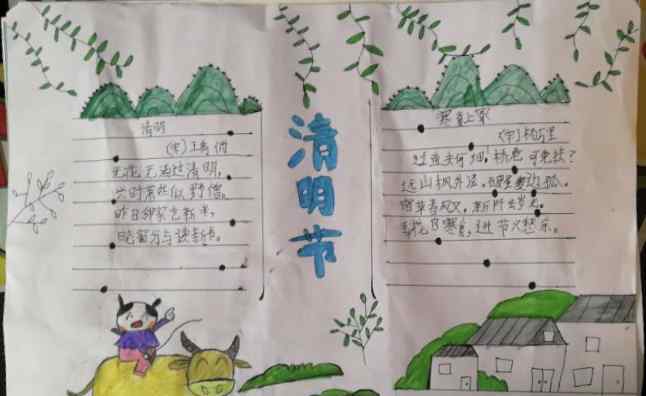 清明节
清明
(宋)王禹偁
无花无酒过清明,
萧然似野僧。
昨日邻家乞新
晓窗分与读
寒食上冢
(宋)杨万里
夫何细!桥危可免扶?
远山枫外淡,破屋麦边孤。
宿草春风又,新阡去岁无。
梨花自寒食,进节